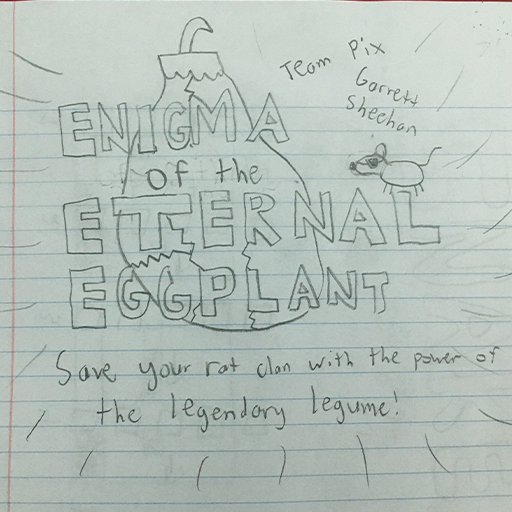 Team Pix
Garrett
Sheehan
ENIGMA
of the
ETERNAL
EGGPLANT
Save your rat clan with the power of
the legendary legume!